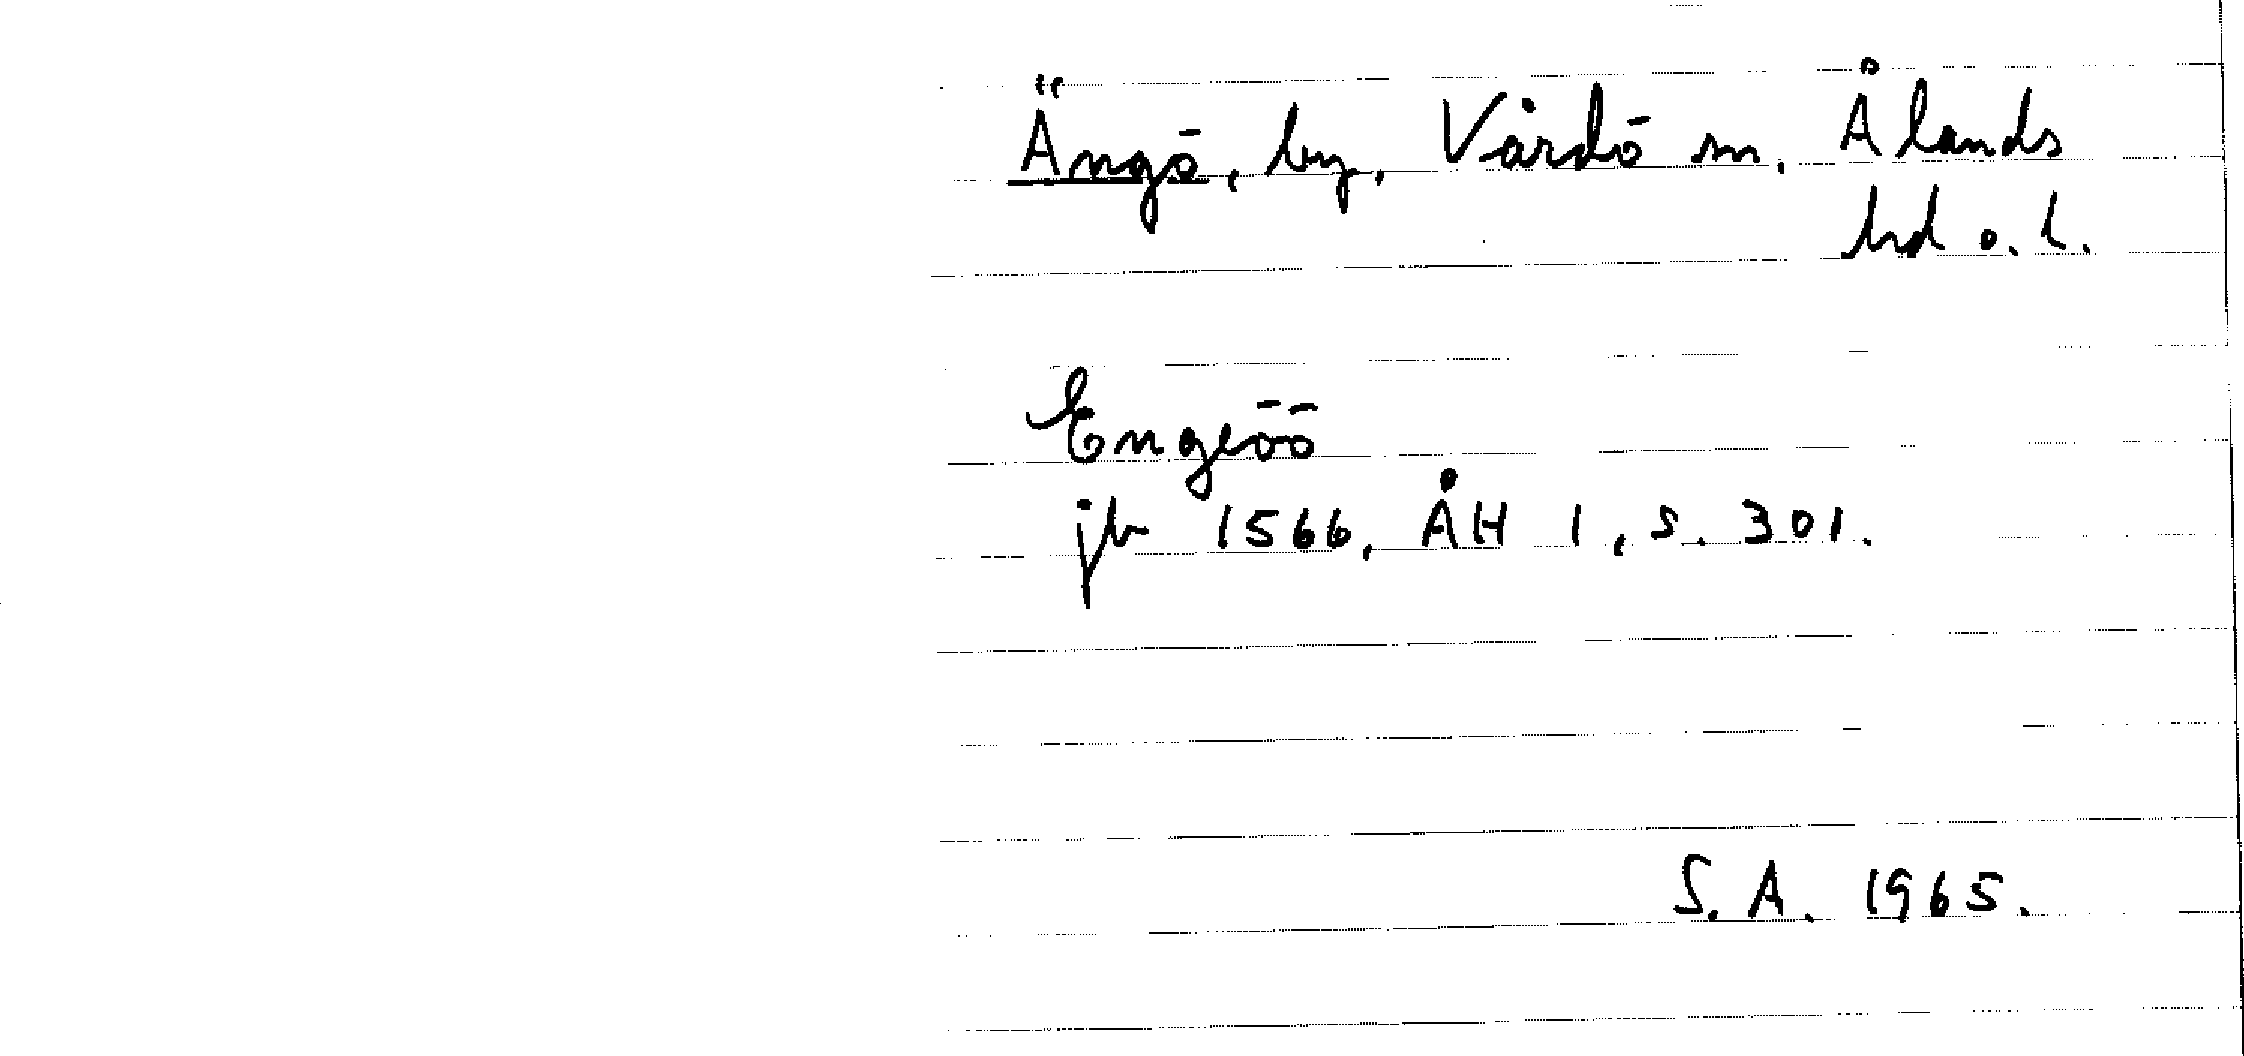 Ängö, by, Vårdö sn. Ålands
hd o. l.
Engeöö
jb 1566, ÅH 1, s. 301.
S. A. 1965.